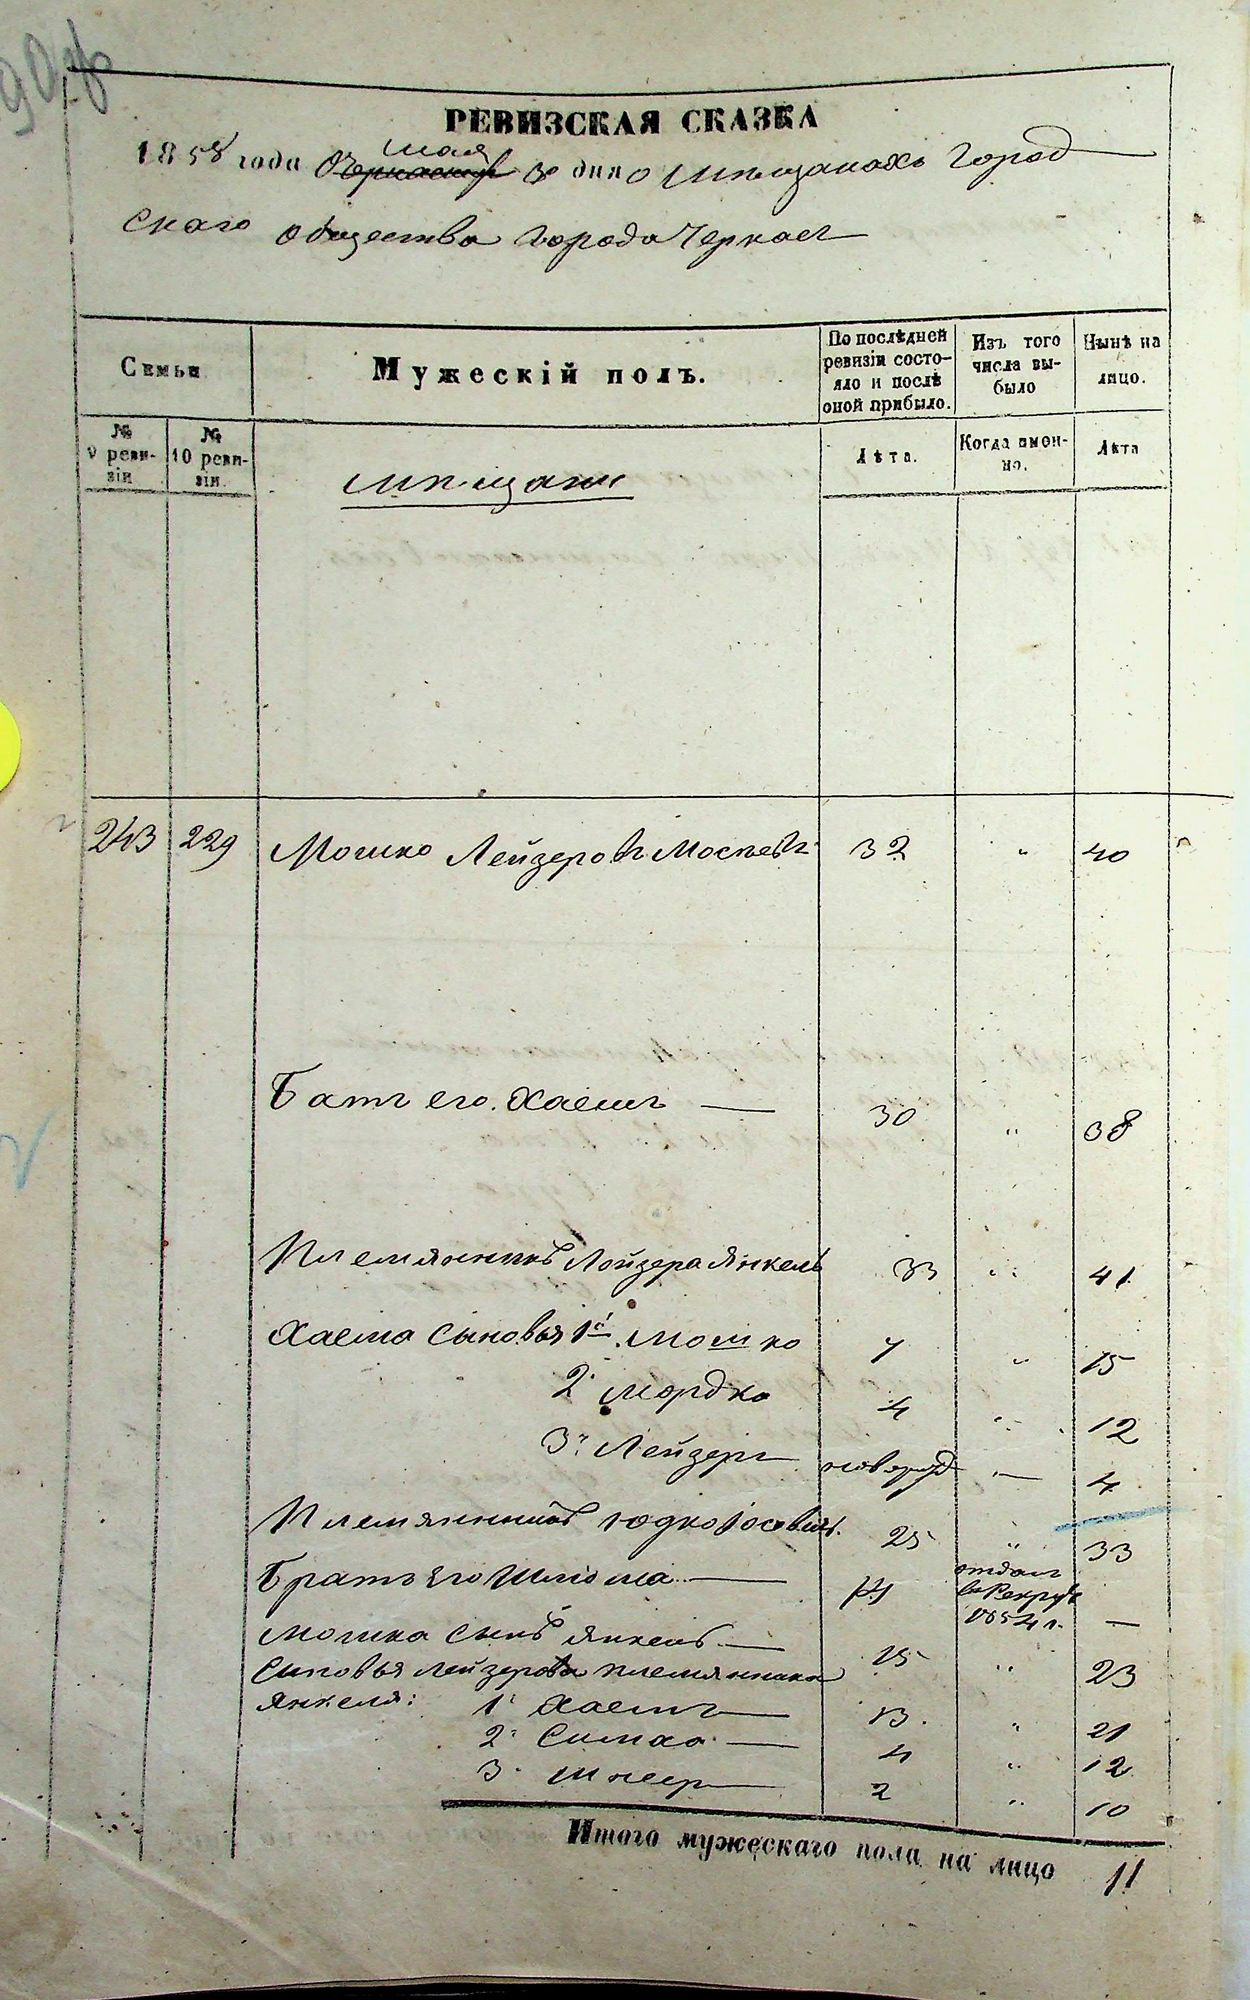 РЕВИЗСКАЯ СКАЗКА
мая
1858 года 3 дня о мѣщанахъ Город
скаго общества города Черкасъ
Семьи
Мужескій полъ.
По послѣдней ревизіи состо-
яло и послѣ
оной прибыло.
Изъ того
числа вы-
было
Нынѣ на
лицо.
№
9 реви-
зіи
№
10 реви-
зіи.
мѣщане
Лѣта.
Когда имен-
но.
Лѣта
243 229 Мошко Лейзеровъ 32 " 40
Братъ его Хаемъ — 30 " 38
Племянникъ Лейзера Янкель 33 " 41
Хаема сыновья 1й Мошко 7 " 15
2. Мордко 4 " 12
3. Лейзеръ новорожд — 4
Племянникъ Юдко 25 " 33
Братъ его Шлiома — отданъ
въ Рекруты
1854 г. —
Мошка сынъ Янкель — 15 " 23
Сыновья Лейзерова племянника
Янкеля: 1. Хаемъ 13. " 21
2. Симха — 4 " 12
3. Шнеер 2 " 10
Итого мужескаго пола на лицо 11